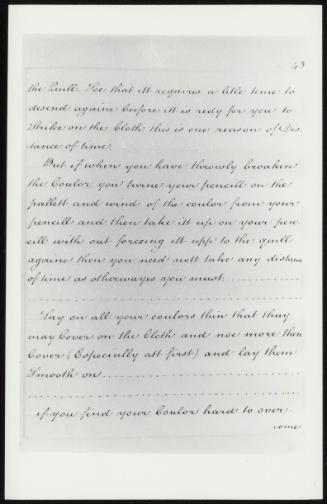 43
the Quill. Soe that itt requires a litle time to
desend againe before itt is redy for you to
Strike on the Cloth this is one reason of Dis
tance of time.
But if when you have throwly broaken
the Coulor you turne your pencill on the
pallett and wind of the coulor from your
pencill and then take itt up on your pen
cill with out forceing itt upp to the quill
againe then you need nott take any distance
of time as otherwayes you must..............
..............................
Lay on all your coulors thin that thay
may Cover on the Cloth and noe more then
Cover (Especially att first) and lay them
Smooth on..............................
..............................
if you find your Coulor hard to over-
come